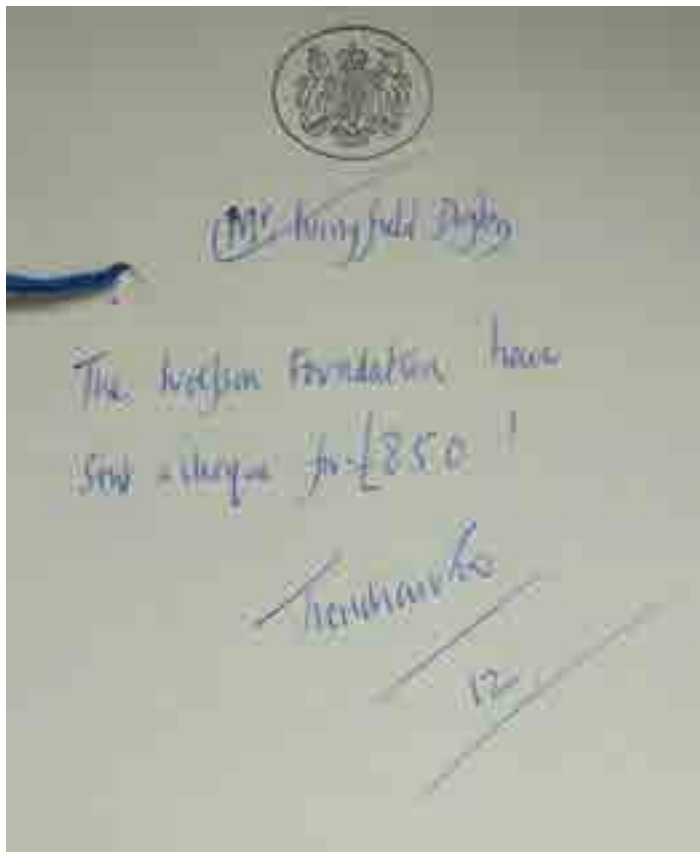 Mr. Wingfield Digby
The Wolfson Foundation have
sent a cheque for £850!
12